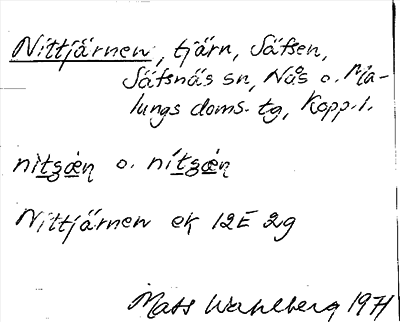 Nittjärnen, tjärn, Säfsen,
Säfsnäs sn, Nås o. Ma-
lungs doms. tg, Kopp. l.
nìtʒæ̀ɳ o. nítʒæ̀ɳ
Nittjärnen ek 12E 2g
Mats Wahlberg 1971